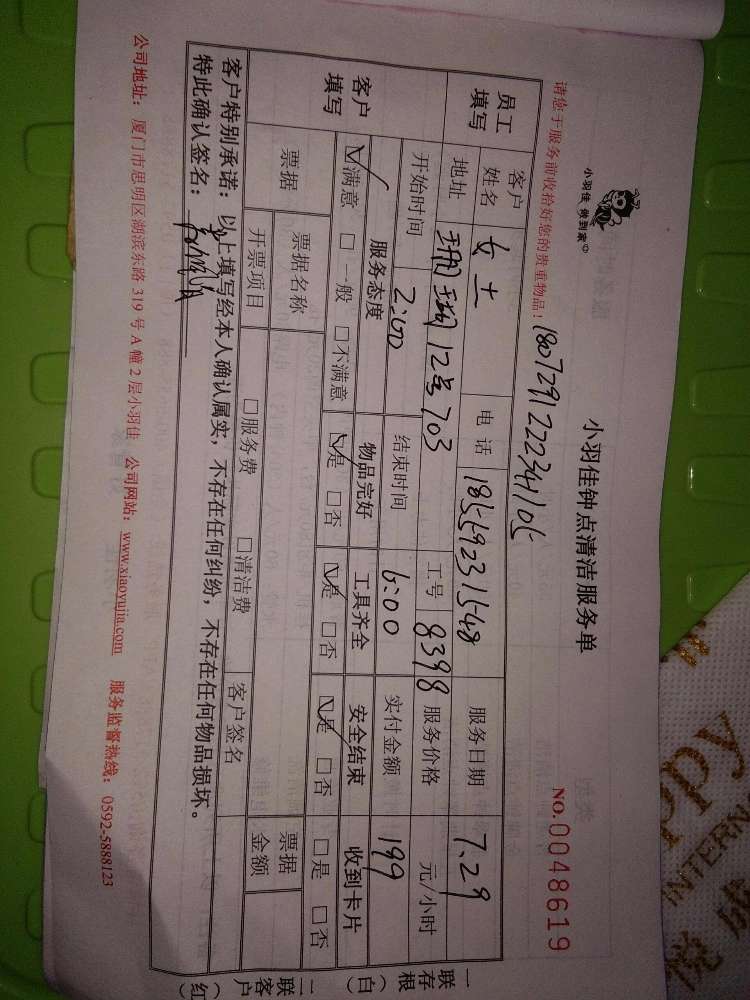 小羽佳 帮到家
小羽佳钟点清洁服务单
请您于服务前收拾好您的贵重物品!
1807291222341105
NO.0048619
员工填写
客户姓名 女士 电话 18559231548 服务日期 7.29
地址 珊瑚12号703 工号 8398 服务价格 元/小时
开始时间 2:00 结束时间 6:00 实付金额 199
客户填写
服务态度 物品完好 工具齐全 安全结束 收到卡片
☑满意 □一般 □不满意 ☑是 □否 ☑是 □否 ☑是 □否 □是 □否
票据 票据名称 票据金额
开票项目 □服务费 □清洁费 客户签名
客户特别承诺:以上填写经本人确认属实,不存在任何纠纷,不存在任何物品损坏。
特此确认签名:
公司地址:厦门市思明区湖滨东路319号A幢2层小羽佳 公司网站:www.xiaoyujia.com 服务监督热线:0592-5888123
一联存根(白)
二联客户(红)